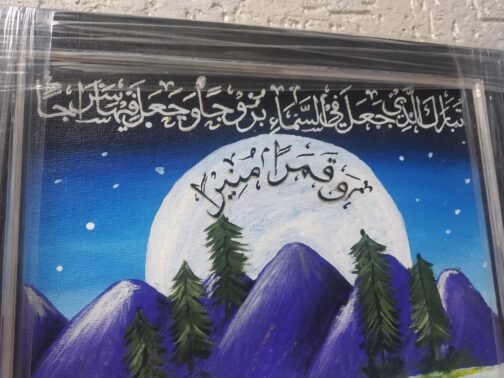 تَبَارَكَ الَّذِي جَعَلَ فِي السَّمَاءِ بُرُوجًا وَجَعَلَ فِيهَا سِرَاجًا
وَقَمَرًا مُنِيرًا